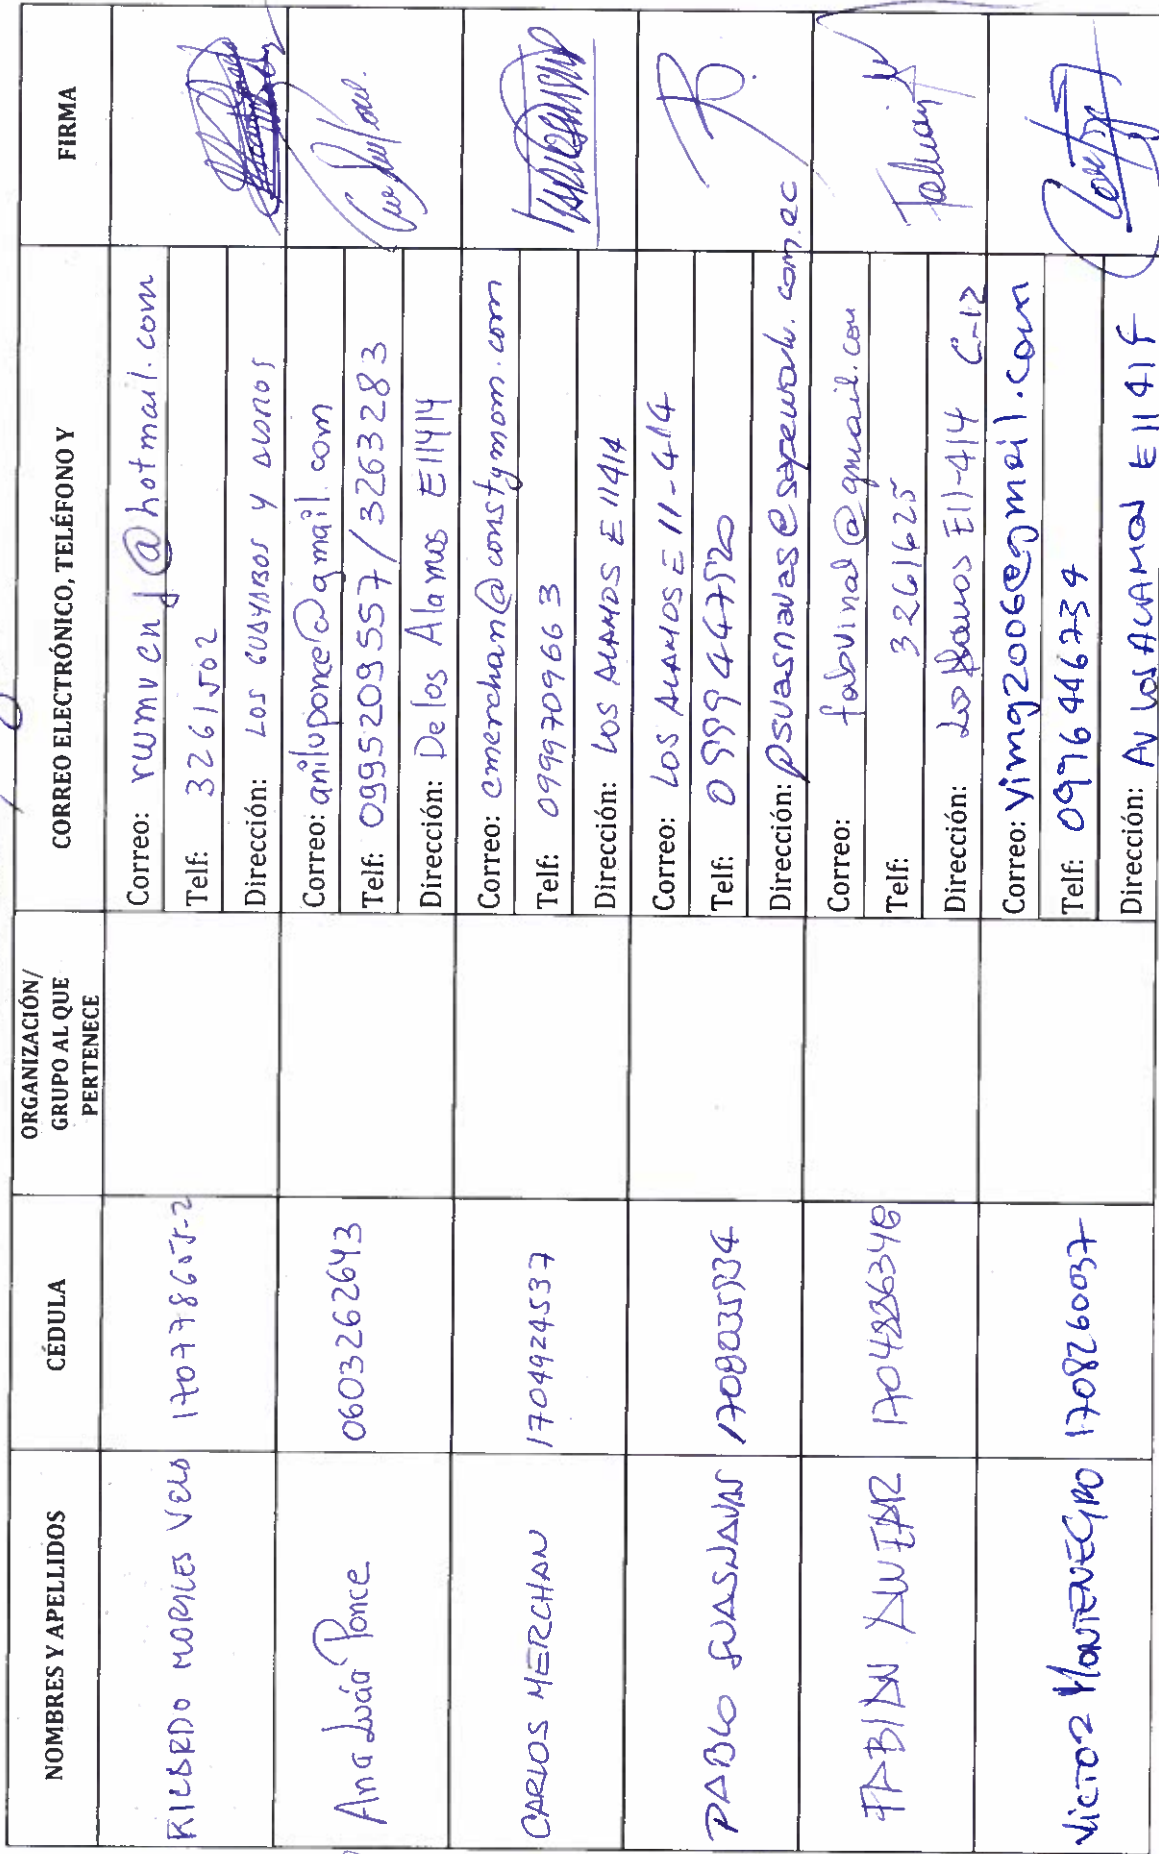 NOMBRES Y APELLIDOS
CÉDULA
ORGANIZACIÓN/
GRUPO AL QUE
PERTENECE
CORREO ELECTRÓNICO, TELÉFONO Y
FIRMA
RICARDO MORALES VELA
170778605-2
Correo: rwmvcnd@hotmail.com
Telf: 3261502
Dirección: LOS GUAYABOS Y
Ana Lucía Ponce
0603262643
Correo: aniluponce@gmail.com
Telf: 0995209557/3263283
Dirección: De los Alamos E11414
CARLOS MERCHAN
1704924537
Correo: cmerchan@constymom.com
Telf: 0999709663
Dirección: LOS ALAMOS E11414
PABLO SUASNAVAS
Correo: LOS ALAMOS E11-414
Telf: 0999447520
Dirección: psuasnavas@sapework.com.ec
FABIAN
Correo: fabvinal@gmail.com
Telf: 3261625
Dirección: Los Alamos E11-414 C-12
VICTOR MONTENEGRO
1708260037
Correo: vimg2006@gmail.com
Telf: 0996446734
Dirección: AV LOS ALAMOS E11414